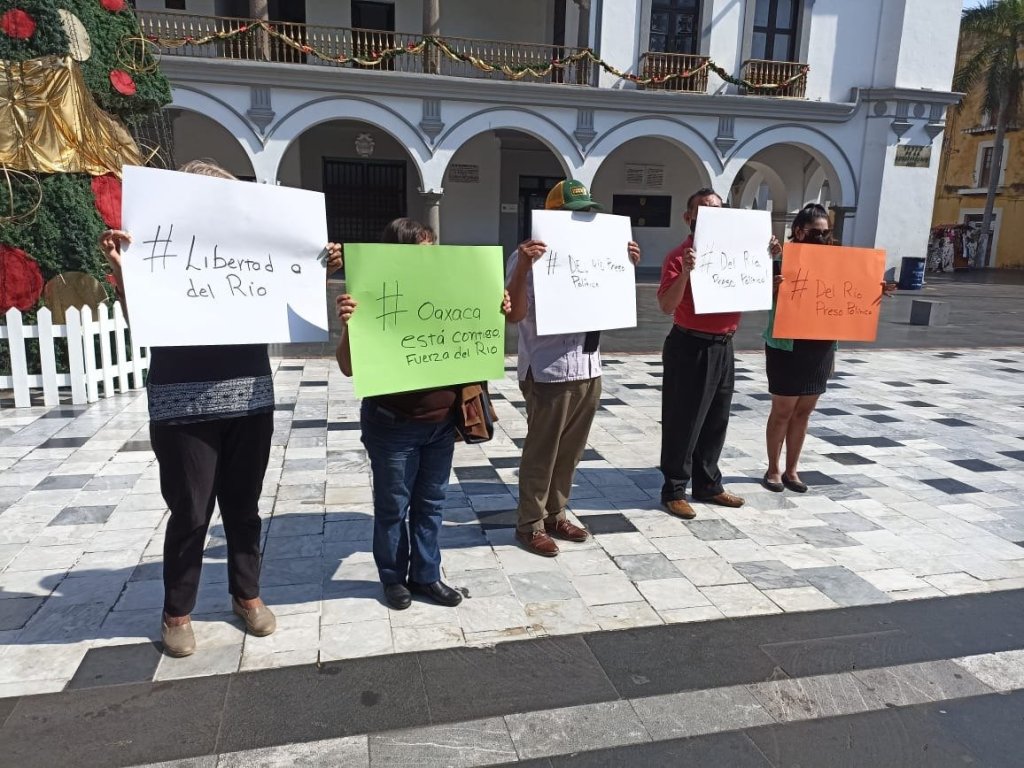 # Libertad a
del Río
# Oaxaca
está contigo,
Fuerza del Río
Preso
Político
# Del Río
Preso Político
# Del Río
Preso Político